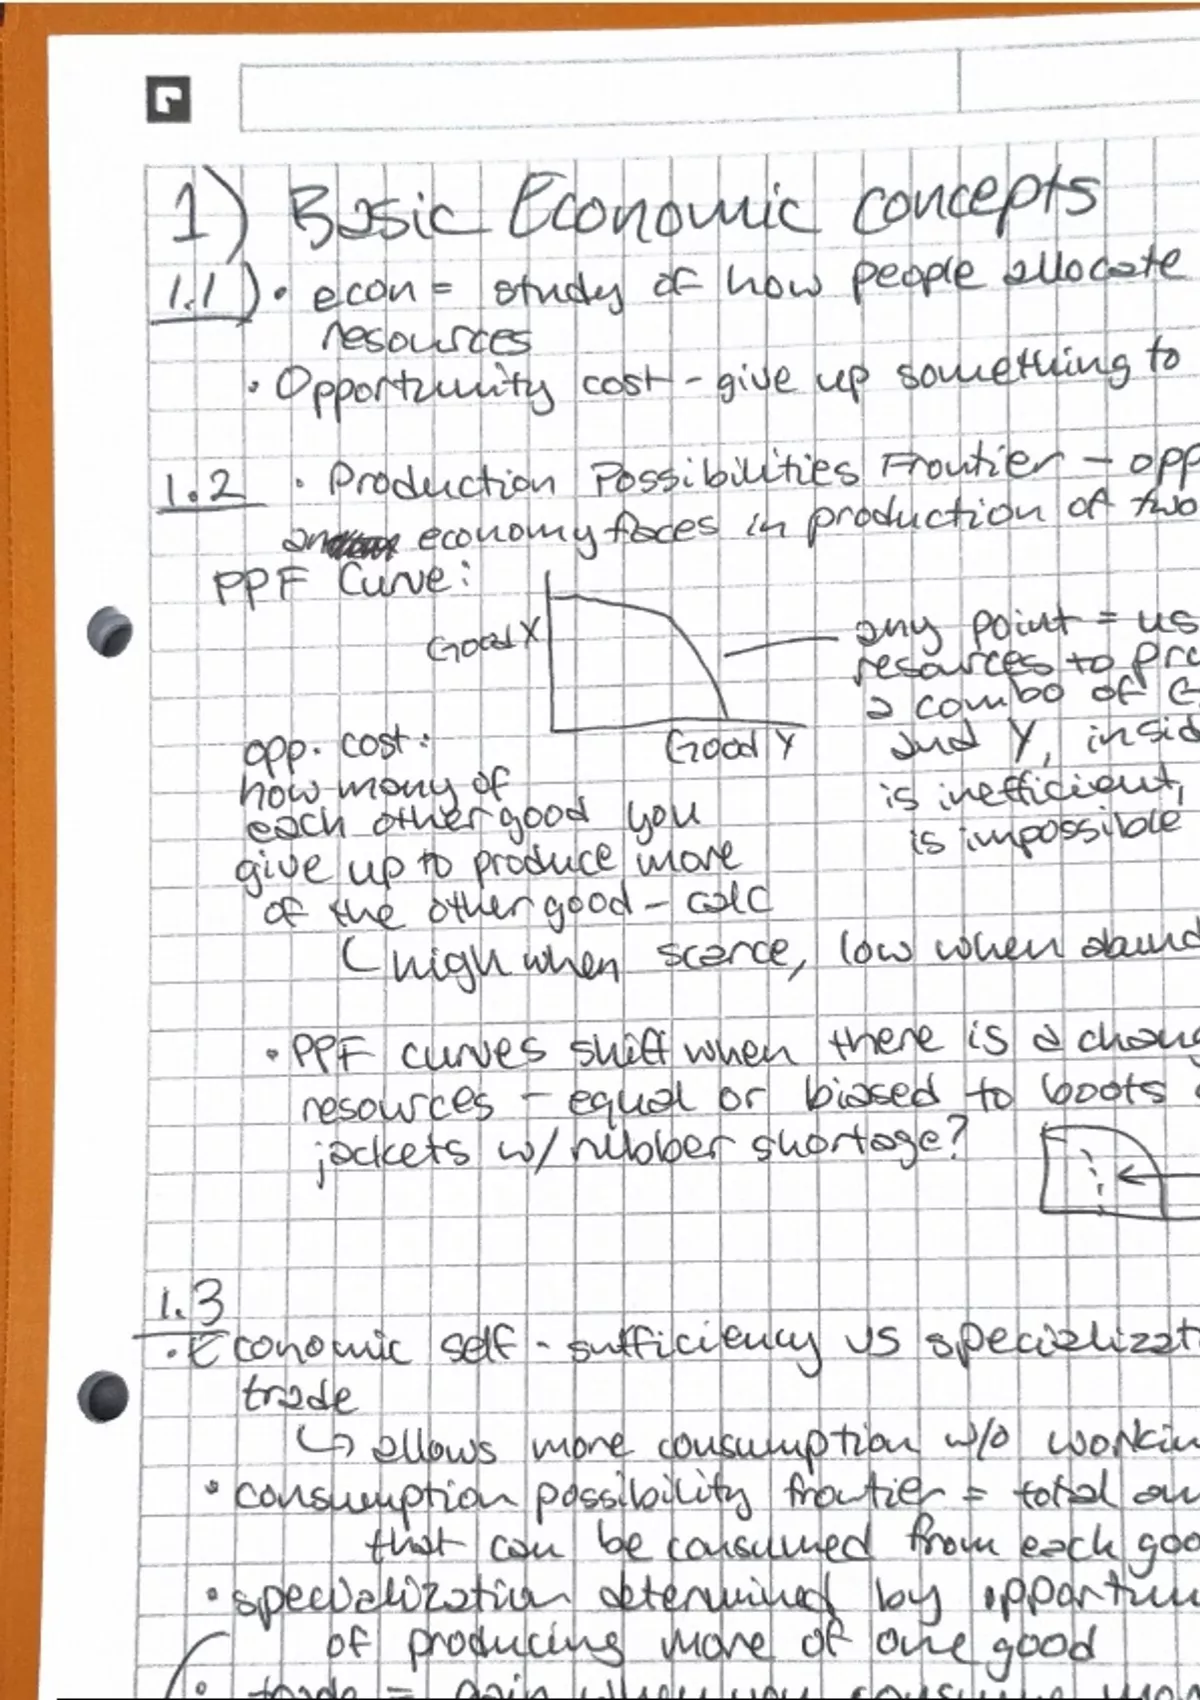 1) Basic Economic concepts
1.1) • econ = study of how people allocate
resources
• Opportunity cost - give up something to
1.2 • Production Possibilities Frontier - opp
an economy faces in production of two
PPF Curve:
Good X
Good Y
any point = us
resources to pro
a combo of G
and Y, insid
is inefficient,
is impossible
opp. cost:
how many of
each other good you
give up to produce more
of the other good - calc
↳ high when scarce, low when abund
• PPF curves shift when there is a chang
resources - equal or biased to boots
jackets w/ rubber shortage?
1.3
• Economic self-sufficiency vs specializati
trade
↳ allows more consumption w/o workin
• consumption possibility frontier = total am
that can be consumed from each goo
• specialization determined by opportun
of producing more of one good
• trade = gain when you consume mor